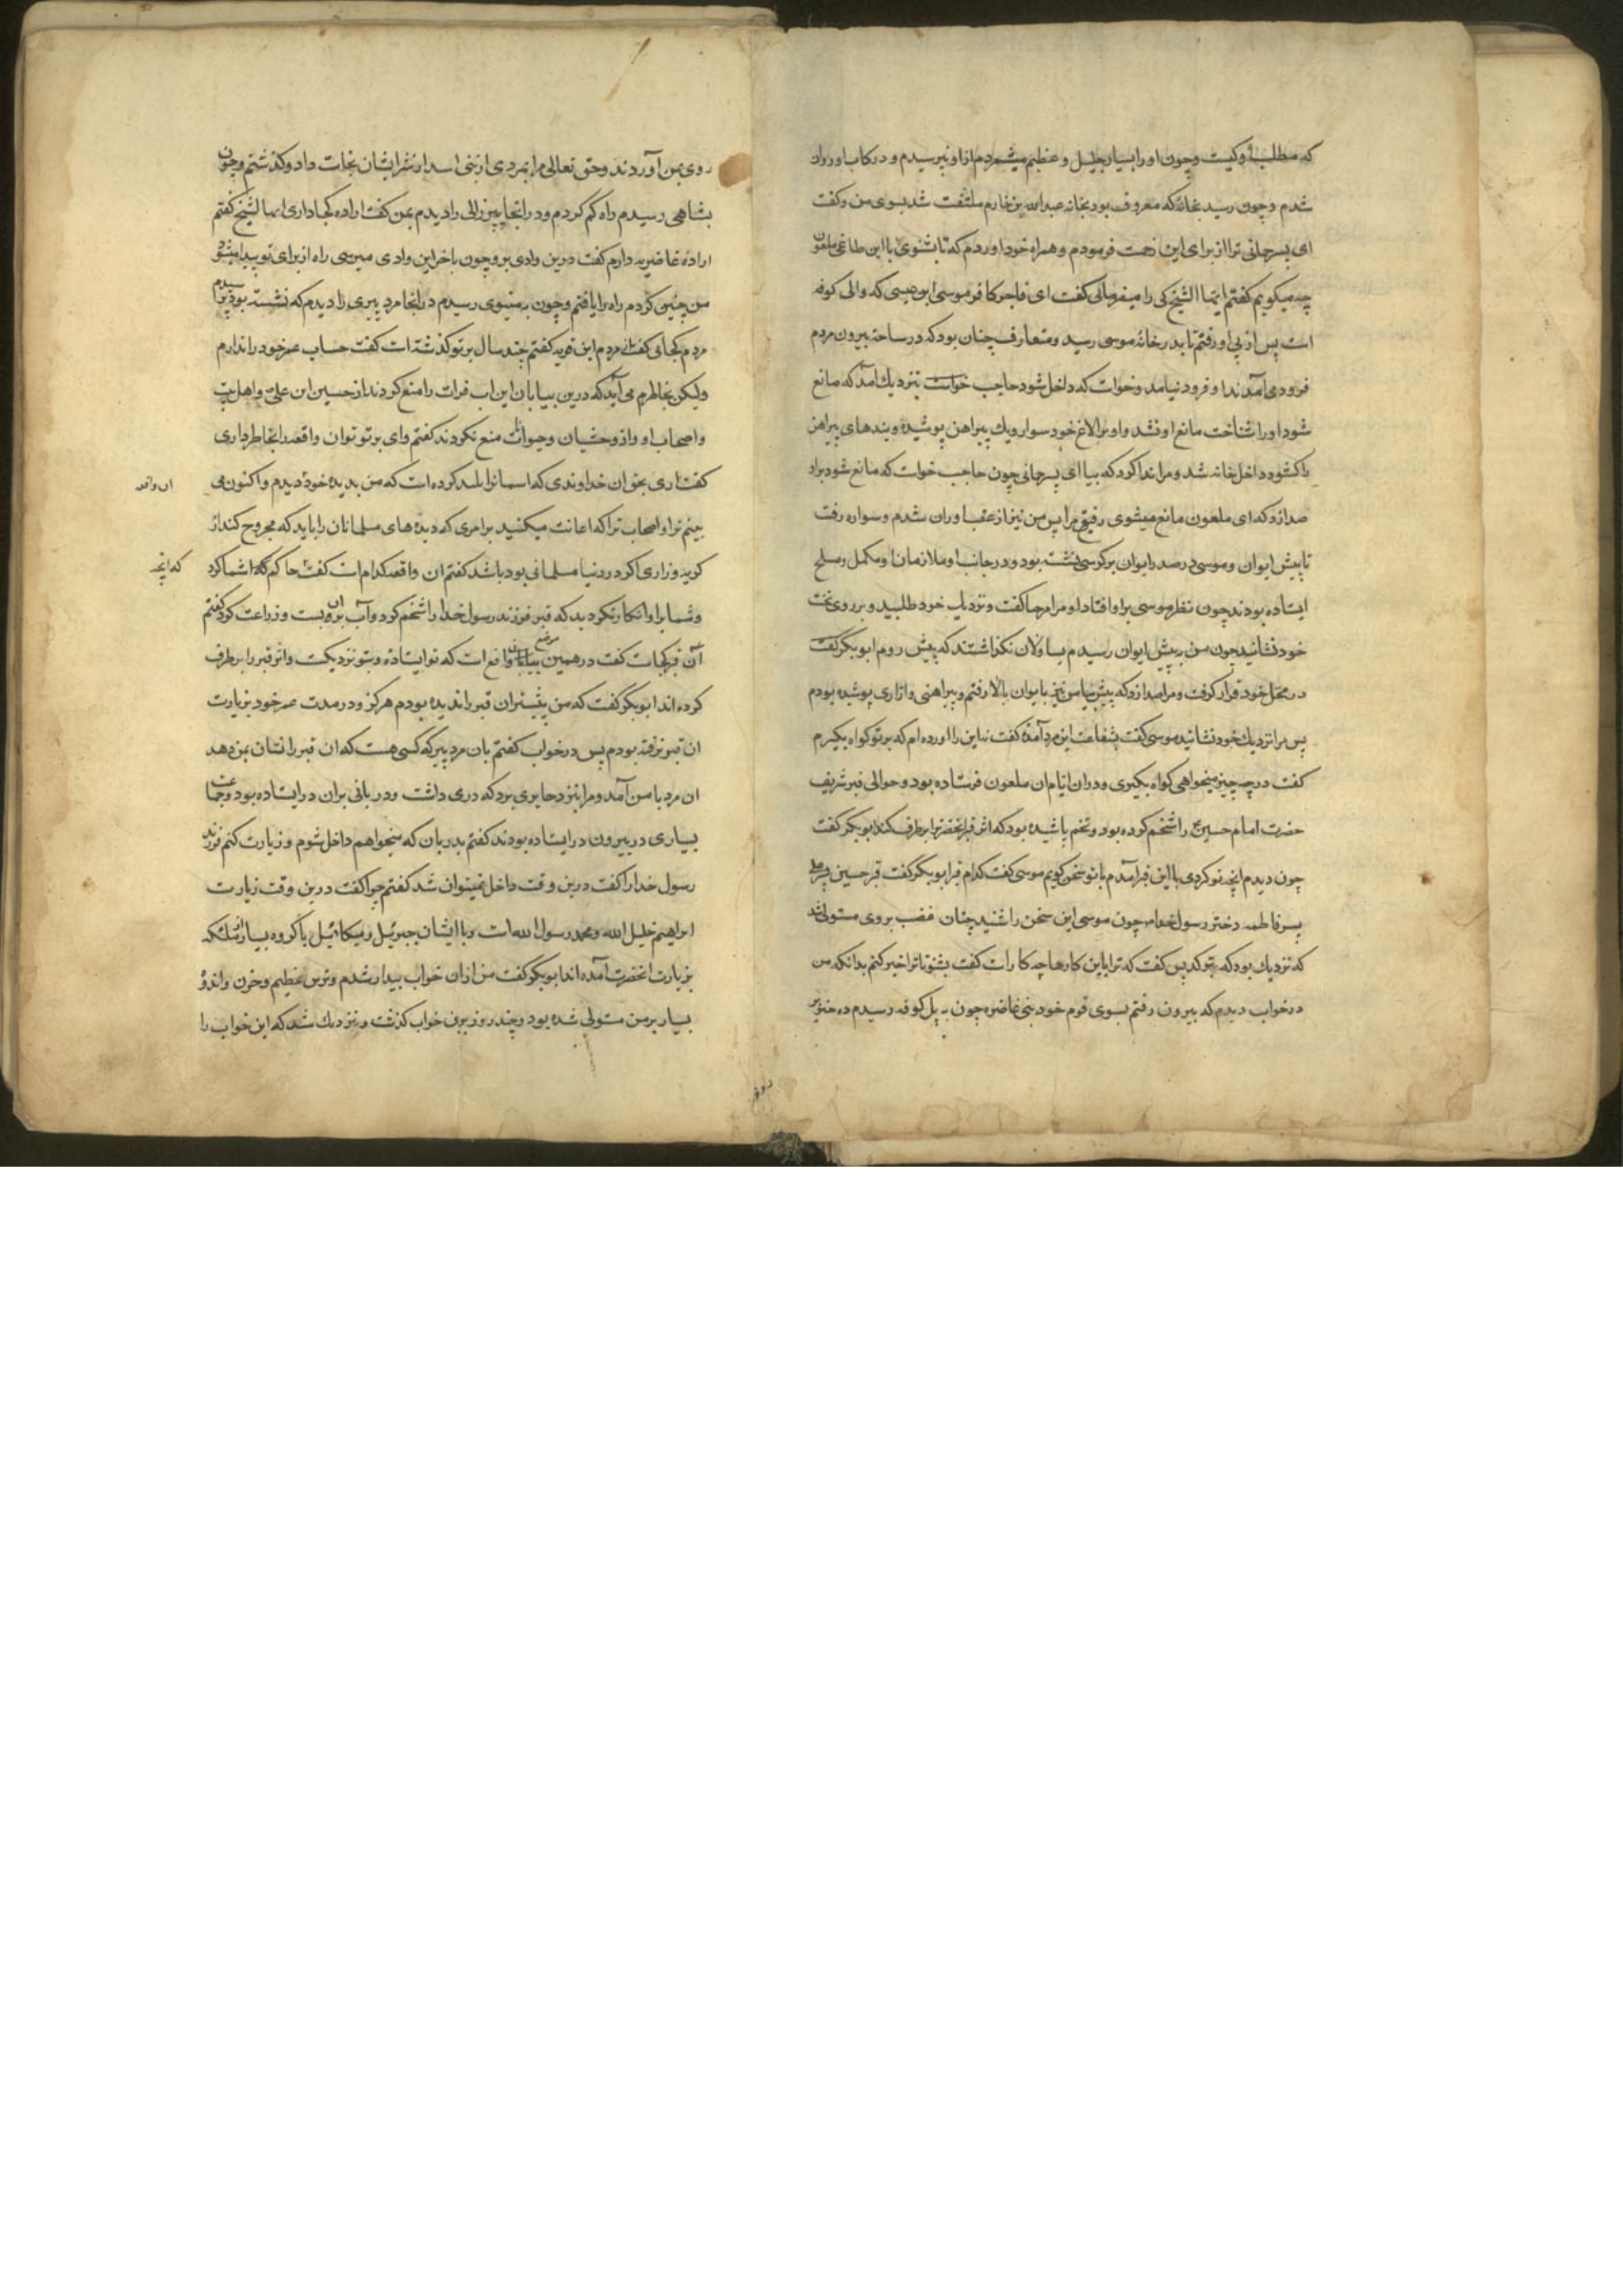 که مطلب او کیست و چون او را بسیار جلیل و عظیم میشمردم از او نپرسیدم و در رکاب او روان
شدم و چون رسید بخانه که معروف بود بخانه عبدالله بن خازم ملتفت شد بسوی من و گفت
ای پسر جانی ترا از برای این زحمت فرمودم و همراه خود اوردم که تا بشنوی با این طاغی ملعون
چه میگویم گفتم ایها الشیخ کی را میفرمائی گفت ای فاجر کافر موسی ابن عیسی که والی کوفه
است پس از پی او رفتم تا بدر خانه موسی رسید و متعارف چنان بود که در ساحة بیرون مردم
فرود می آمدند او فرود نیامد و خواست که داخل شود حاجب نزدیك آمد که مانع
شود او را شناخت مانع او نشد و او بر الاغ خود سوار و یك پیراهن پوشیده و بندهای پیراهن
را کشوده داخل خانه شد و مرا ندا کرد که بیا ای پسر جانی چون حاجب خواست که مانع شود بر او
صدا زد که ای ملعون مانع میشوی رفیق مرا پس من نیز از عقب او روان شدم و سواره رفت
تا پیش ایوان و موسی در صدر ایوان بر کرسی نشسته بود و در جانب او ملازمان او مکمل و مسلح
ایستاده بودند چون نظر موسی بر او افتاد او را مرحبا گفت و نزدیك خود طلبید و بر روی تخت
خود نشانید چون من به پیش ایوان رسیدم یساولان نگذاشتند که پیش روم ابو بکر گفت
در محل خود قرار گرفت و مرا صدا زد که پیش بیا من نیز بایوان بالا رفتم و پیراهنی و ازاری پوشیده بودم
پس مرا نزدیك خود نشانید موسی گفت بشفاعت این مرد آمده گفت نه این را اورده ام که بر تو گواه بگیرم
گفت در چه چیز میخواهی گواه بگیری و در ان ایام ان ملعون فرستاده بود و حوالی قبر شریف
حضرت امام حسین ع را شخم کرده بود و تخم پاشیده بود که اثر قبر انحضرترا برطرف کند ابو بکر گفت
چون دیدم انچه تو کردی با این قبر آمدم با تو سخن گویم موسی گفت کدام قبر ابو بکر گفت قبر حسین پسر علی
پسر فاطمه دختر رسول خدا ص چون موسی این سخن را شنید چنان غضب بر وی مستولی شد
که نزدیك بود که بترکد پس گفت که ترا باین کارها چه کار است گفت بشنو تا ترا خبر کنم بدانکه من
در خواب دیدم که بیرون رفتم بسوی قوم خود بنی غاضره چون به پل کوفه رسیدم ده خنزیر
روی بمن آوردند و حق تعالی مرا بمردی از بنی اسد از شر ایشان نجات داد و گذشتم و چون
بشاهی رسیدم راه گم کردم و در انجا پیر زالی را دیدم بمن گفت اراده کجا داری ایها الشیخ گفتم
اراده غاضریه دارم گفت درین وادی برو چون باخر این وادی میرسی راه از برای تو پیدا میشود
من چنین کردم راه را یافتم و چون به نینوی رسیدم در انجا مرد پیری را دیدم که نشسته بود پرسیدم
مردم کجائی گفت از مردم این قریه گفتم چند سال بر تو گذشته است گفت حساب عمر خود را ندارم
ولیکن بخاطرم می آید که درین بیابان این اب فرات را منع کردند از حسین ابن علی و اهل بیت
و اصحاب او و از وحشیان و حیوانات منع نکردند گفتم وای بر تو توان واقعه را بخاطر داری
گفت اری بحق ان خداوندی که اسمانرا بلند کرده است که من بدیده خود دیدم و اکنون می
ان واقعه
بینم ترا و اصحاب ترا که اعانت میکنید بر امری که دیده های مسلمانان را باید که مجروح کند از
گریه و زاری اگر در دنیا مسلمانی بوده باشد گفتم ان واقعه کدام است گفت حاکم شما کرد
که انچه
و شما بر او انکار نکردید که قبر فرزند رسول خدا را شخم کرد و آب بر ان بست و زراعت کرد گفتم
آن قبر کجاست گفت در همین موضع واقع است که تو ایستاده و بتو نزدیکست و اثر قبر را برطرف
کرده اند ابو بکر گفت که من پیشتر ان قبر را ندیده بودم هرگز و در مدت عمر خود بزیارت
ان قبر نرفته بودم پس در خواب گفتم بان مرد پیر که کسی هست که ان قبر را نشان بمن دهد
ان مرد با من آمد و مرا بنزد حایری برد که دری داشت و دربانی بر ان در ایستاده بود و جماعت
بسیاری در بیرون در ایستاده بودند گفتم بدربان که میخواهم داخل شوم و زیارت کنم فرزند
رسول خدا را گفت درین وقت داخل نمیتوان شد گفتم چرا گفت درین وقت زیارت
ابراهیم خلیل الله و محمد رسول الله است و با ایشان جبرئیل و میکائیل با گروه بسیار از ملئکه
بزیارت انحضرت آمده اند ابو بکر گفت من از ان خواب بیدار شدم و ترس عظیم و حزن و اندوه
بسیار بر من مستولی شده بود و چند روز برین خواب گذشت و نزدیك شد که این خواب را